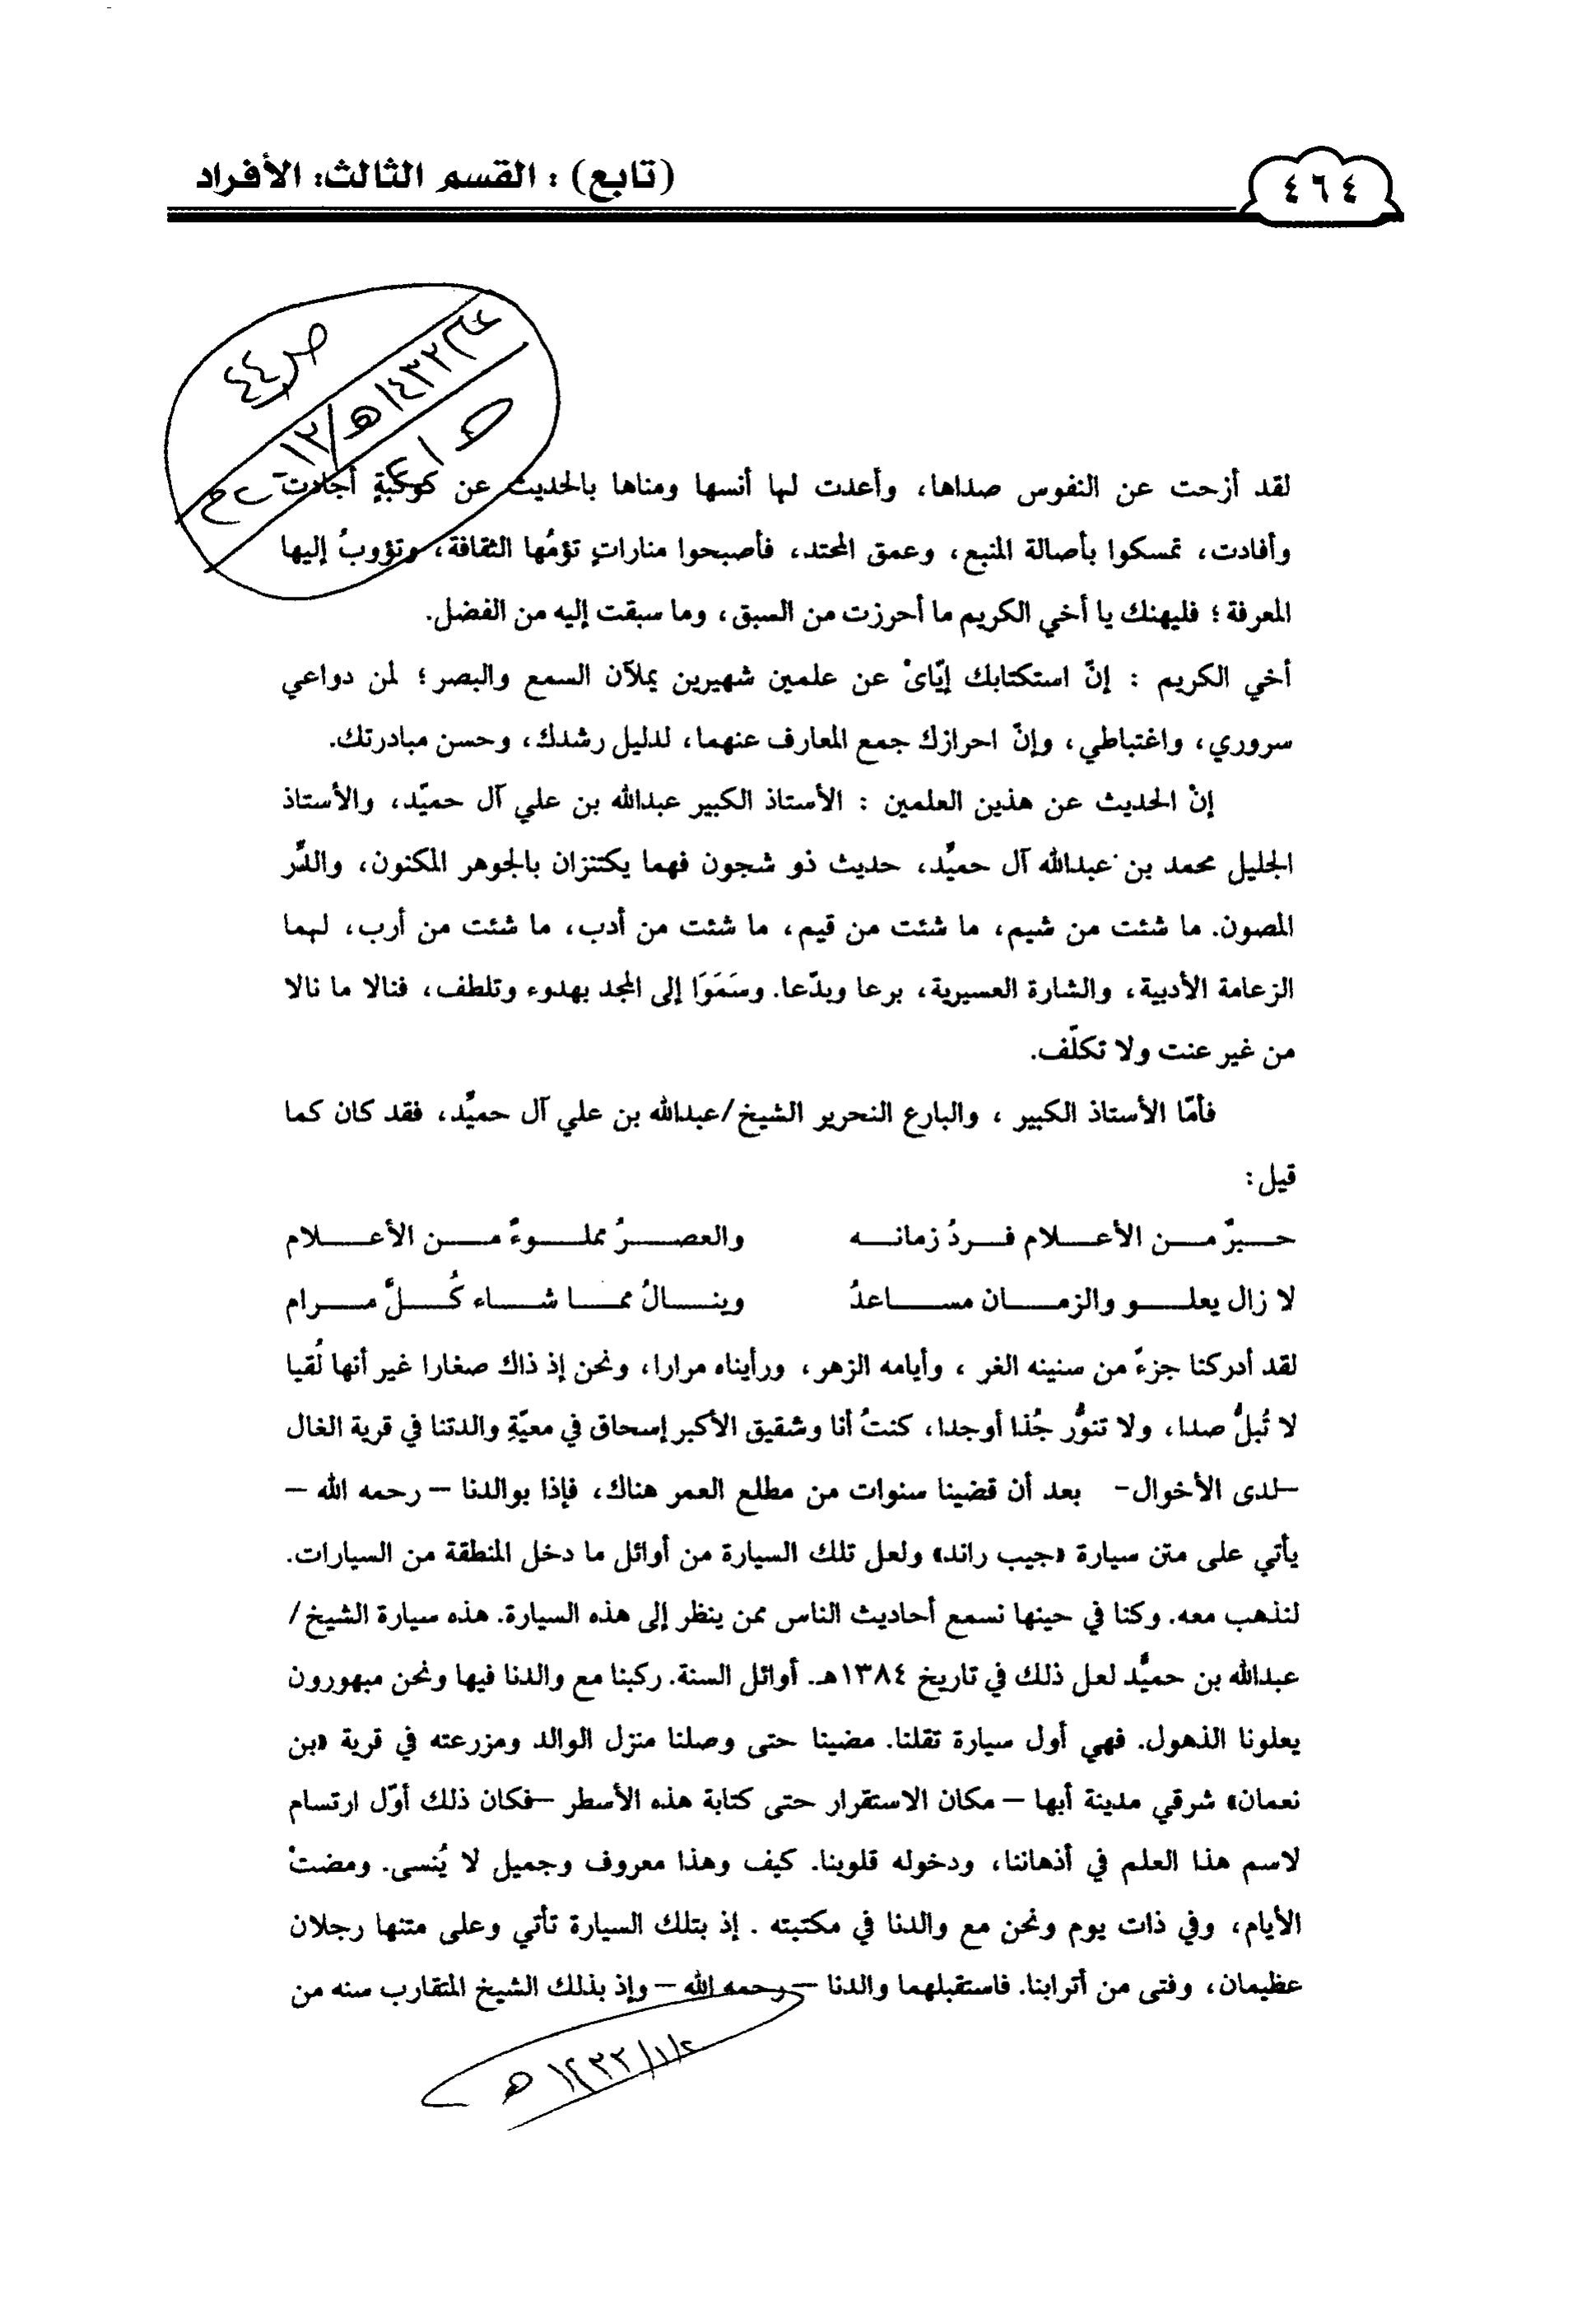 ٤٦٤
(تابع) : القسم الثالث: الأفراد
ص٤٤
لقد أزحت عن النفوس صداها، وأعدت لها أنسها ومناها بالحديث عن كوكبةٍ أجادت
وأفادت، تمسكوا بأصالة المنبع، وعمق المحتد، فأصبحوا مناراتٍ تؤمُها الثقافة، وتؤوبُ إليها
المعرفة؛ فليهنك يا أخي الكريم ما أحرزت من السبق، وما سبقت إليه من الفضل.
أخي الكريم : إنّ استكتابك إيّايْ عن علمين شهيرين يملآن السمع والبصر؛ لمن دواعي
سروري، واغتباطي، وإنّ احرازك جمع المعارف عنهما، لدليل رشدك، وحسن مبادرتك.
إنّ الحديث عن هذين العلمين : الأستاذ الكبير عبدالله بن علي آل حميّد، والأستاذ
الجليل محمد بن عبدالله آل حميُّد، حديث ذو شجون فهما يكتنزان بالجوهر المكنون، والدُّر
المصون. ما شئت من شيم، ما شئت من قيم، ما شئت من أدب، ما شئت من أرب، لهما
الزعامة الأدبية، والشارة العسيرية، برعا وبدّعا. وسَمَوَا إلى المجد بهدوء وتلطف، فنالا ما نالا
من غير عنت ولا تكلّف.
فأمّا الأستاذ الكبير ، والبارع النحرير الشيخ/عبدالله بن علي آل حميُّد، فقد كان كما
قيل:
حبرٌ من الأعلام فردُ زمانه والعصرُ مملوءٌ من الأعلام
لا زال يعلو والزمان مساعدُ وينالُ مما شاء كُلَّ مرام
لقد أدركنا جزءً من سنينه الغر ، وأيامه الزهر، ورأيناه مرارا، ونحن إذ ذاك صغارا غير أنها لُقيا
لا تُبلُّ صدا، ولا تنوُّر جُذا أوجدا، كنتُ أنا وشقيق الأكبر إسحاق في معيّةِ والدتنا في قرية الغال
–لدى الأخوال- بعد أن قضينا سنوات من مطلع العمر هناك، فإذا بوالدنا – رحمه الله –
يأتي على متن سيارة «جيب راند» ولعل تلك السيارة من أوائل ما دخل المنطقة من السيارات.
لنذهب معه. وكنا في حينها نسمع أحاديث الناس ممن ينظر إلى هذه السيارة. هذه سيارة الشيخ/
عبدالله بن حميُّد لعل ذلك في تاريخ ١٣٨٤هـ. أوائل السنة. ركبنا مع والدنا فيها ونحن مبهورون
يعلونا الذهول. فهي أول سيارة تقلنا. مضينا حتى وصلنا منزل الوالد ومزرعته في قرية «بن
نعمان» شرقي مدينة أبها – مكان الاستقرار حتى كتابة هذه الأسطر –فكان ذلك أوّل ارتسام
لاسم هذا العلم في أذهاننا، ودخوله قلوبنا. كيف وهذا معروف وجميل لا يُنسى. ومضتْ
الأيام، وفي ذات يوم ونحن مع والدنا في مكتبته . إذ بتلك السيارة تأتي وعلى متنها رجلان
عظيمان، وفتى من أترابنا. فاستقبلهما والدنا – رحمه الله – وإذ بذلك الشيخ المتقارب سنه من